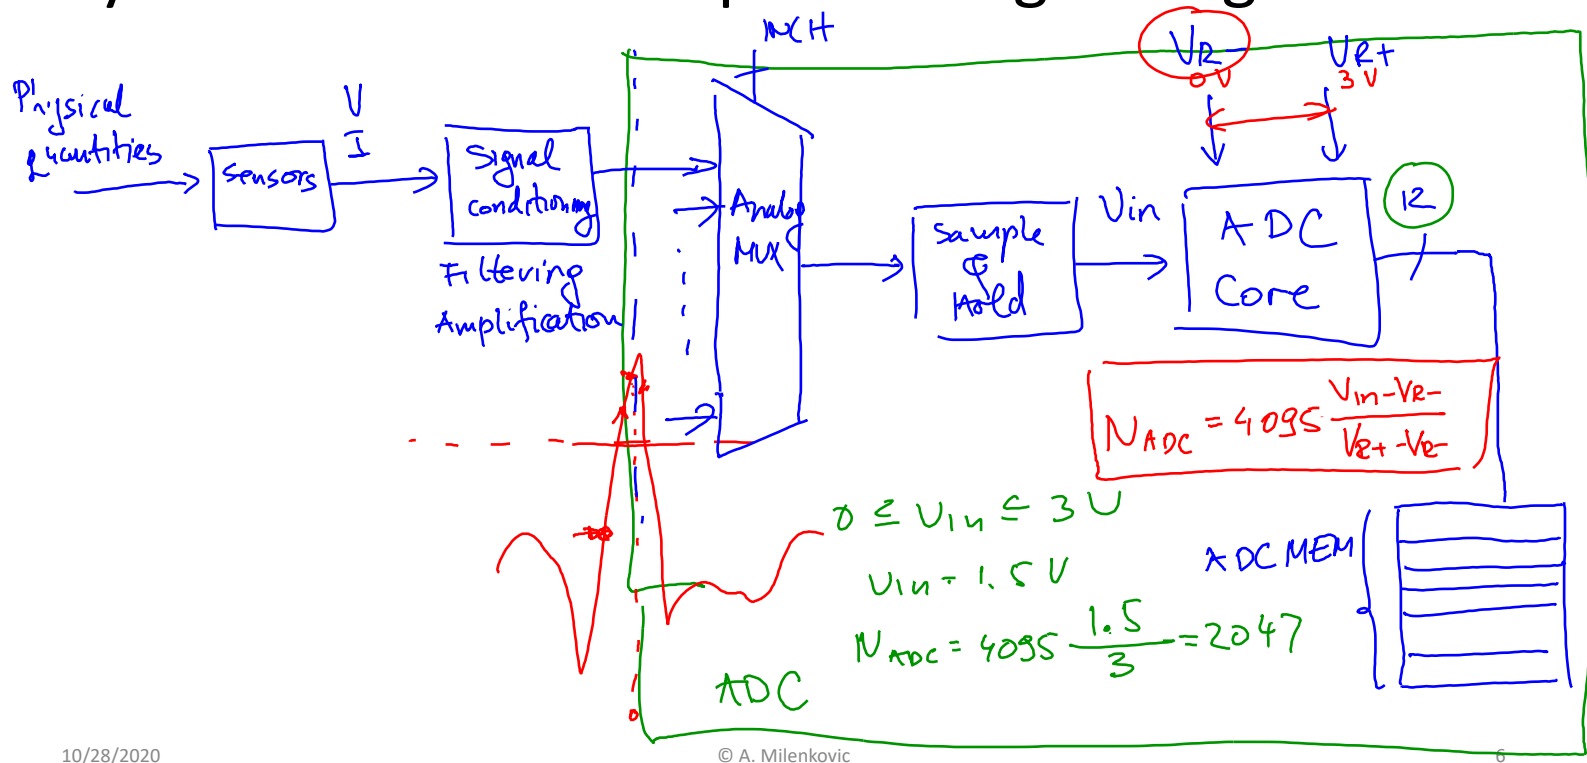 INCH
VR-
VR+
0 V
3 V
Physical
quantities
V
I
Sensors
Signal
conditioning
Filtering
Amplification
Analog
MUX
Sample
&
Hold
Vin
ADC
Core
12
NADC = 4095 Vin-VR- / VR+-VR-
0 ≤ Vin ≤ 3 V
Vin = 1.5 V
NADC = 4095 1.5 / 3 = 2047
ADC MEM
ADC
10/28/2020
© A. Milenkovic
6